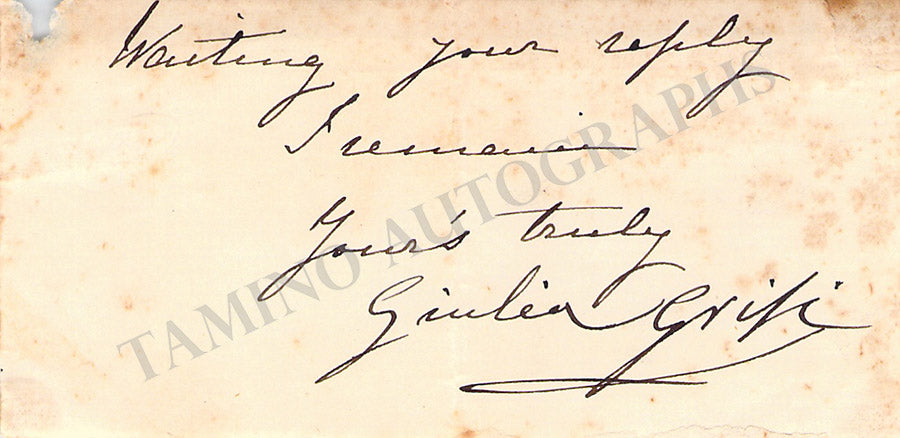 Waiting your reply
I remain
Your's truly
Giulia Grisi
TAMINO AUTOGRAPHS